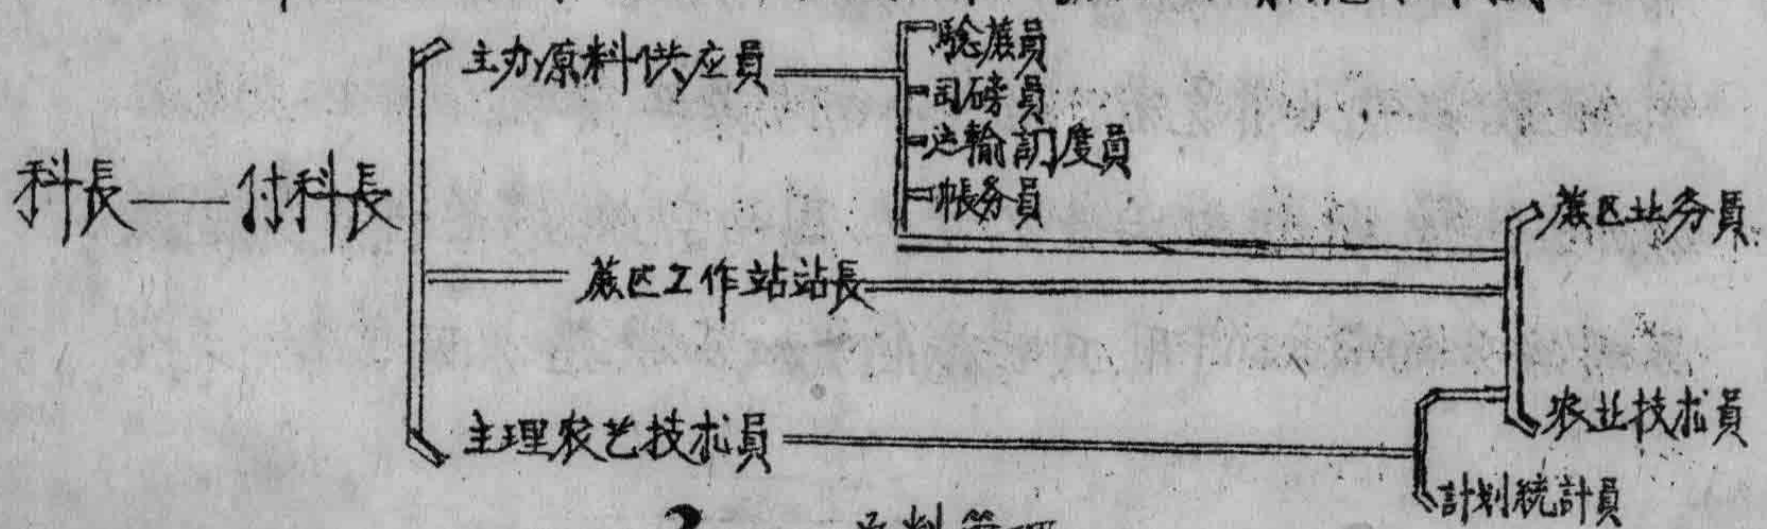 科長——付科長
主办原料供应員
驗蔗員
司磅員
运輸調度員
帳务員
蔗区工作站站長
蔗区业务員
主理农艺技术員
农业技术員
計划統計員
2